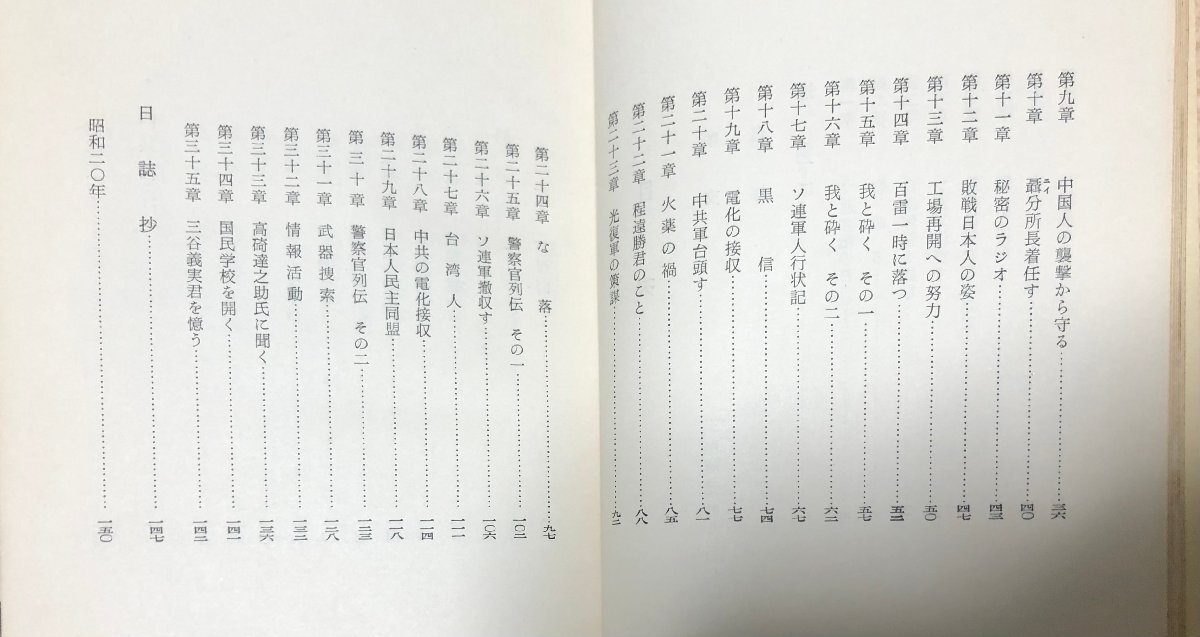 第九章 中国人の襲撃から守る……三六
第十章 聶分所長着任す……四〇
ニイ
第十一章 秘密のラジオ……四三
第十二章 敗戦日本人の姿……四七
第十三章 工場再開への努力……五〇
第十四章 百雷一時に落つ……五三
第十五章 我と砕く その一……五七
第十六章 我と砕く その二……六二
第十七章 ソ連軍人行状記……六七
第十八章 黒信……七四
第十九章 電化の接収……七七
第二十章 中共軍台頭す……八一
第二十一章 火薬の禍……八五
第二十二章 程遠勝君のこと……八八
第二十三章 光復軍の策謀……九二
第二十四章 な落……九七
第二十五章 警察官列伝 その一……一〇二
第二十六章 ソ連軍撤収す……一〇六
第二十七章 台湾人……一一一
第二十八章 中共の電化接収……一一四
第二十九章 日本人民主同盟……一一八
第三十章 警察官列伝 その二……一二三
第三十一章 武器捜索……一二八
第三十二章 情報活動……一三三
第三十三章 高碕達之助氏に聞く……一三六
第三十四章 国民学校を開く……一四一
第三十五章 三谷義実君を憶う……一四三
日誌抄……一四七
昭和二〇年……一五〇